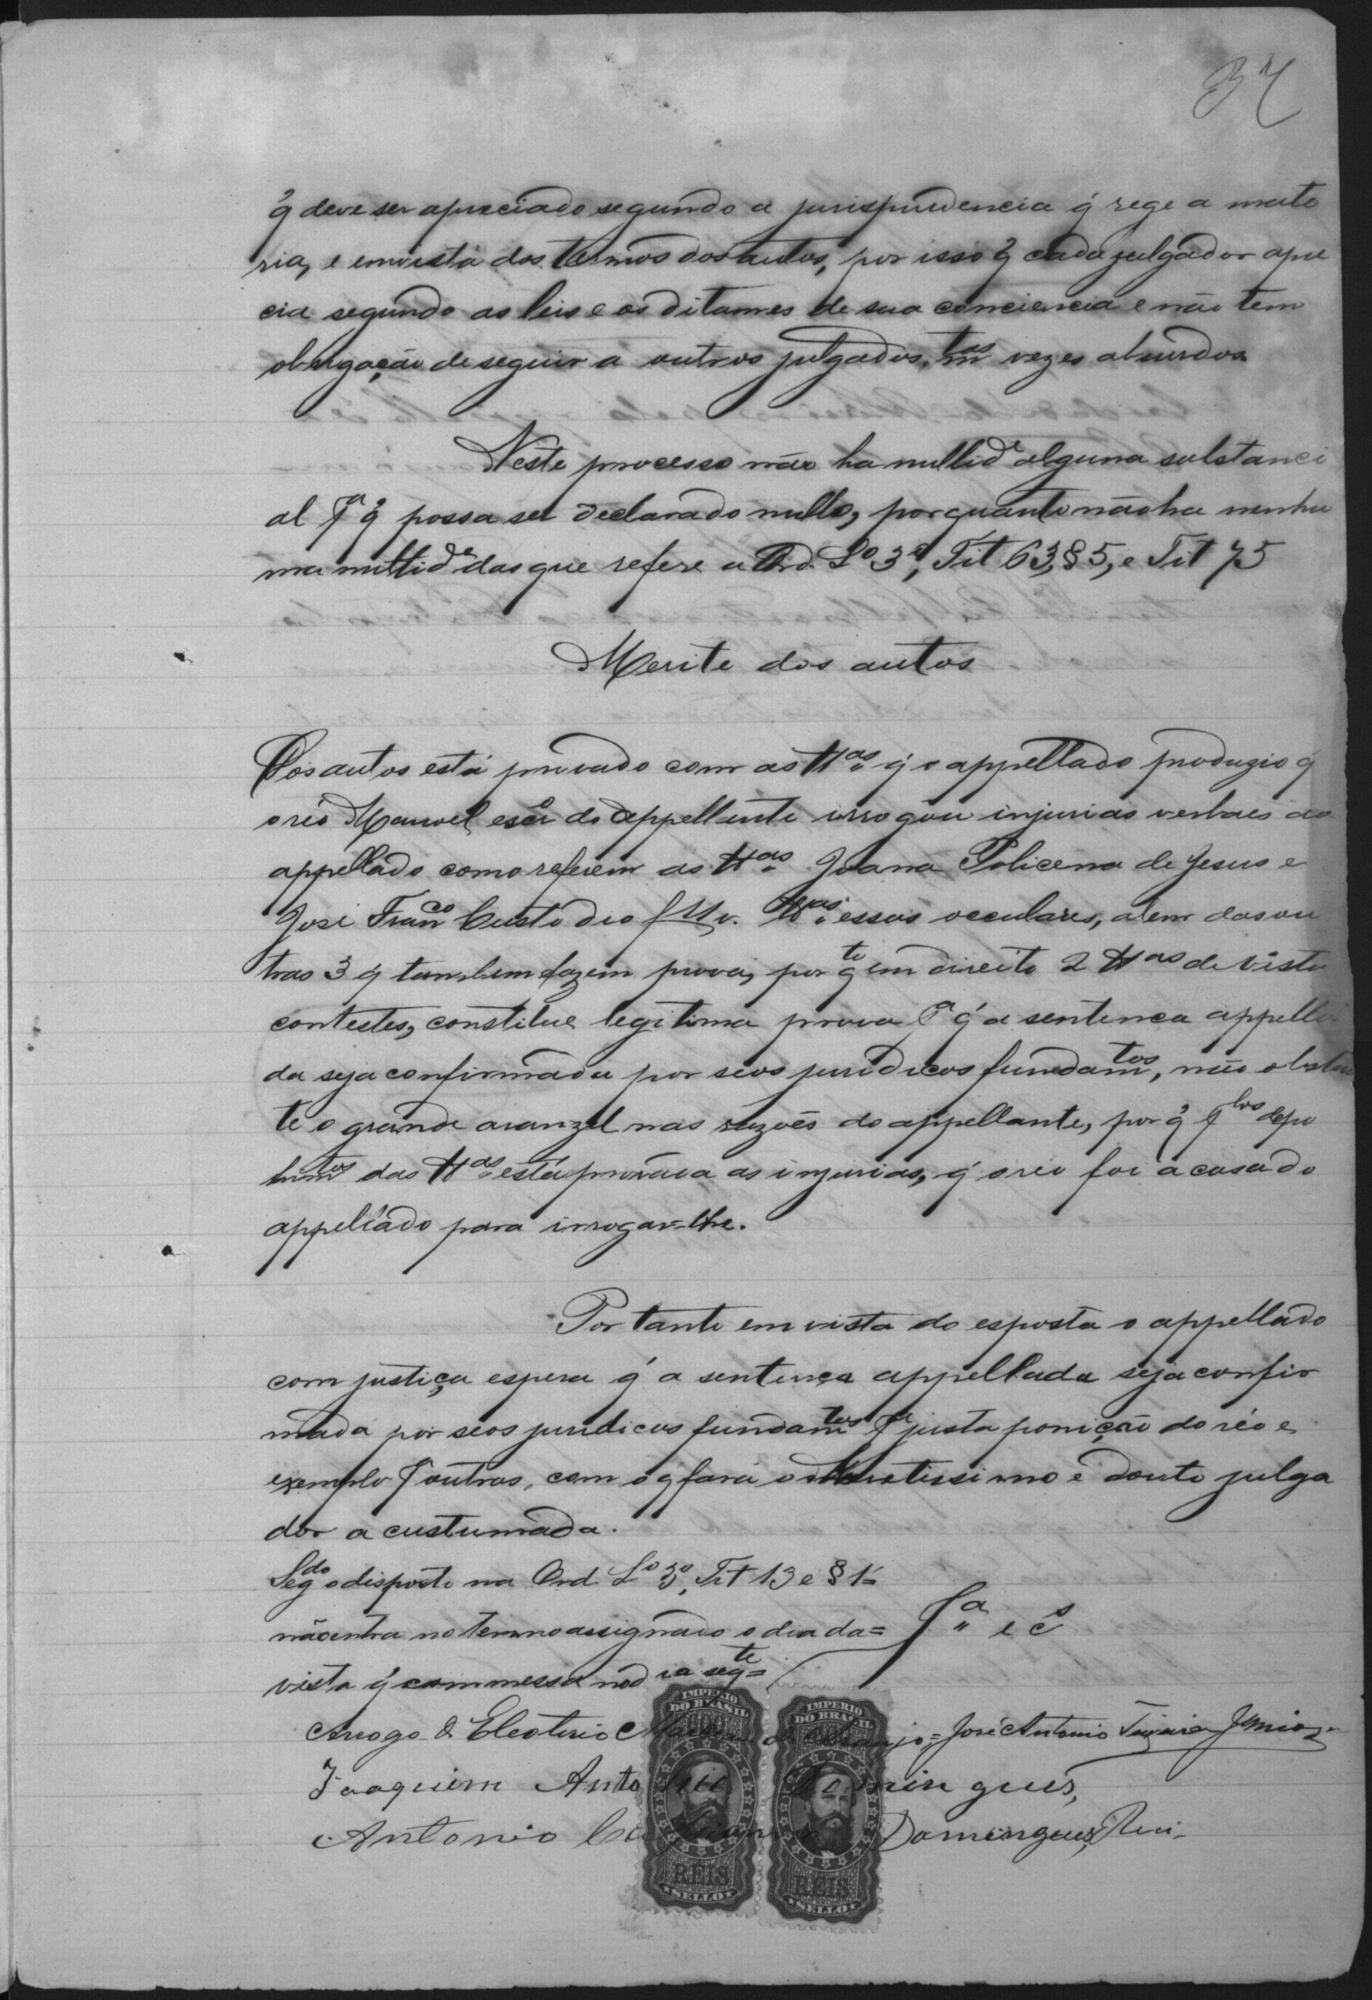 37
q̃ deve ser apreciado segundo a jurisprudencia q̃ rege a mate
ria, e em vista dos termos dos autos, por isso q̃ cada julgador apre
cia segundo as leis e os ditames de sua conciencia e não tem
obrigação de seguir a outros julgados, tas vezes absurdos
Neste processo não ha nullide alguma substanci
al pa q̃ possa ser declarado nullo, por quanto não ha nenhu
ma nullide das que refere a Ord. Lo 3o, Tit 63, § 5, e Tit 75
Merito dos autos
Dos autos está provado com as ttas q̃ o appellado produzio q̃
o réo Manoel escro do appellante irrogou injurias verbaes ao
appellado como referem as ttas Joana Policena de Jesus e
José Franco Custodio ttas essas occulares, alem das ou
tras 3 q̃ tambem fazem prova, por qte em direito 2 ttas de vista
contestes, constitue legitima prova pa q̃ a sentença appella
da seja confirmada por seos juridicos fundamtos, não obstan
te o grande aranzel nas razões do appellante, por q̃ plos depo
imtos das ttas está provada as injurias, q̃ o réo foi a casa do
appellado para irrogar-lhe.
Por tanto em vista do esposto o appellado
com justiça espera q̃ a sentença appellada seja confir
mada por seos juridicos fundamtos pa justa ponição do réo e
exemplo pa outros, com o q̃ fará o Meretissimo e douto julga
dor a custumada.
Segdo o disposto na Ord. Lo 3o, Tit 13 e § 1=
não entra no termo assignado o dia da= Ja e Cs
vista q̃ commessa no dia segte=
Arogo de Eleoterio = José Antonio Teixeira Junior
Joaquim Antonio Domingues,
Antonio Domingues,
IMPERIO DO BRASIL
REIS
SELLO
IMPERIO DO BRASIL
REIS
SELLO